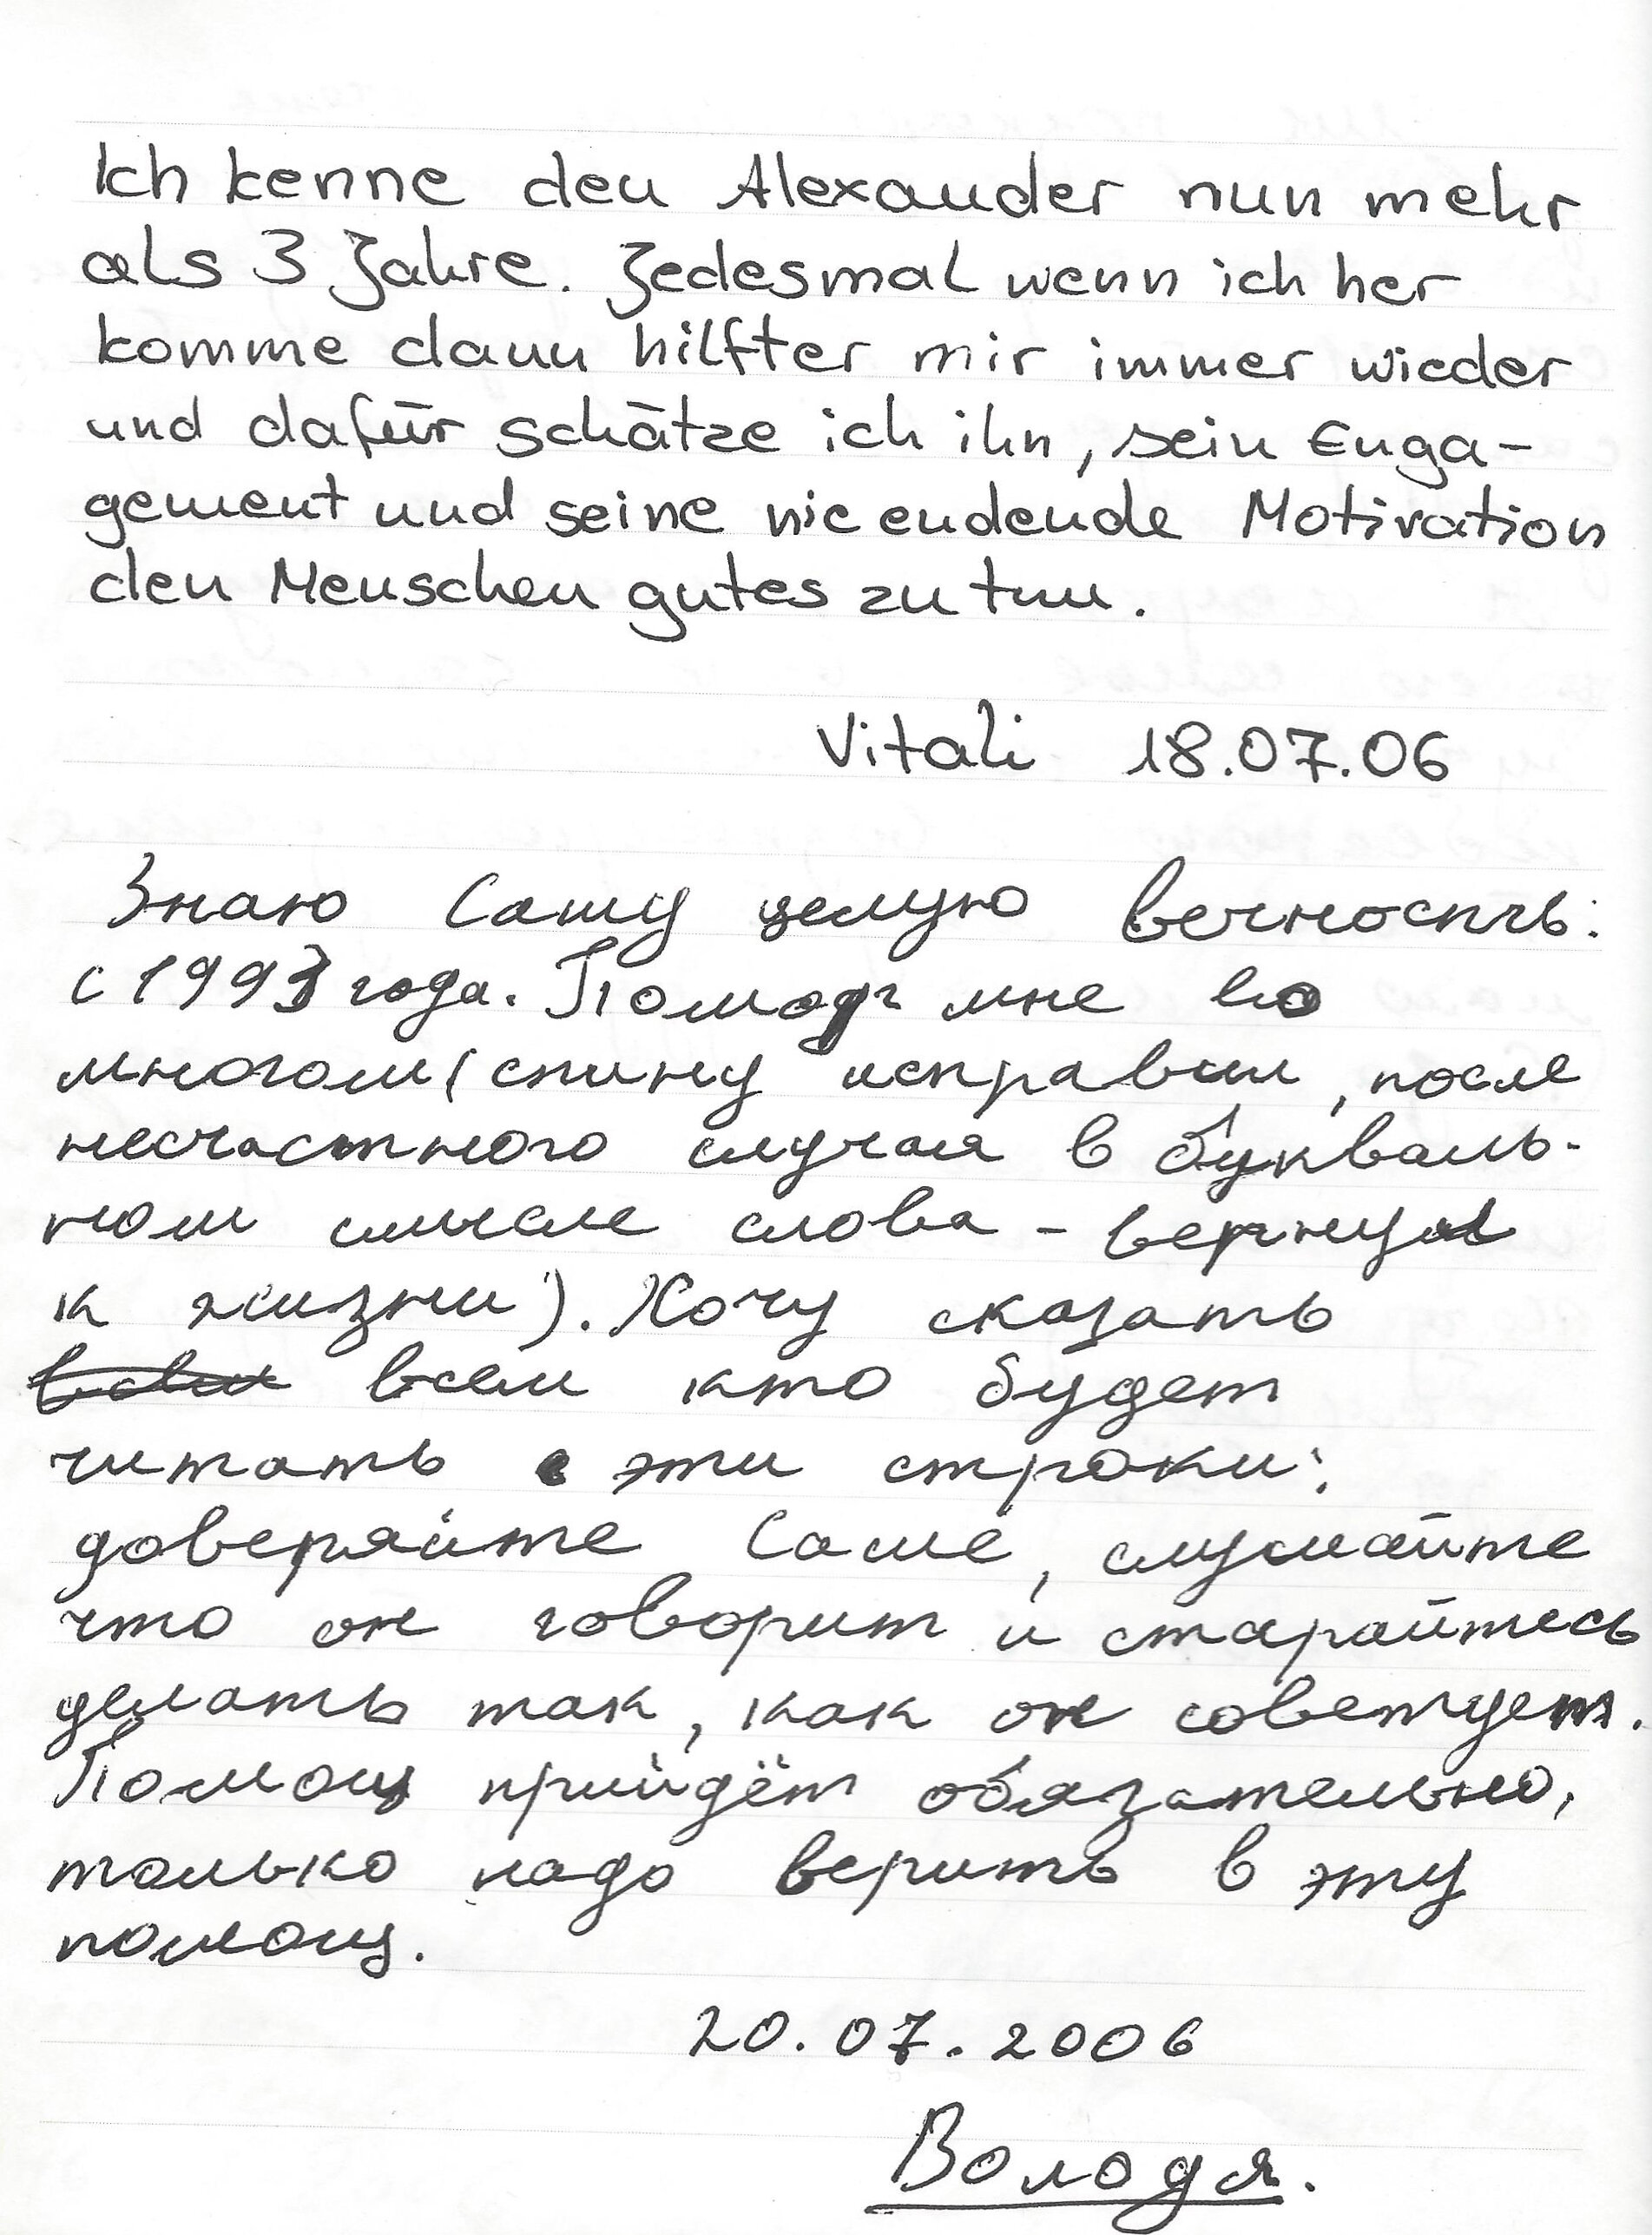 Ich kenne den Alexander nun mehr
als 3 Jahre. Jedesmal wenn ich her
komme dann hilfter mir immer wieder
und dafür schätze ich ihn, sein Enga-
gement und seine nie endende Motivation
den Menschen gutes zu tun.
Vitali 18.07.06
Знаю Сашу целую вечность:
с 1993 года. Помог мне во
многом (спину исправил, после
несчастного случая в букваль-
ном смысле слова - вернул
к жизни). Хочу сказать
всем кто будет
читать эти строки:
доверяйте Саше, слушайте
что он говорит и старайтесь
делать так, как он советует.
Помощ прийдёт обязательно,
только надо верить в эту
помощ.
20.07.2006
Володя.